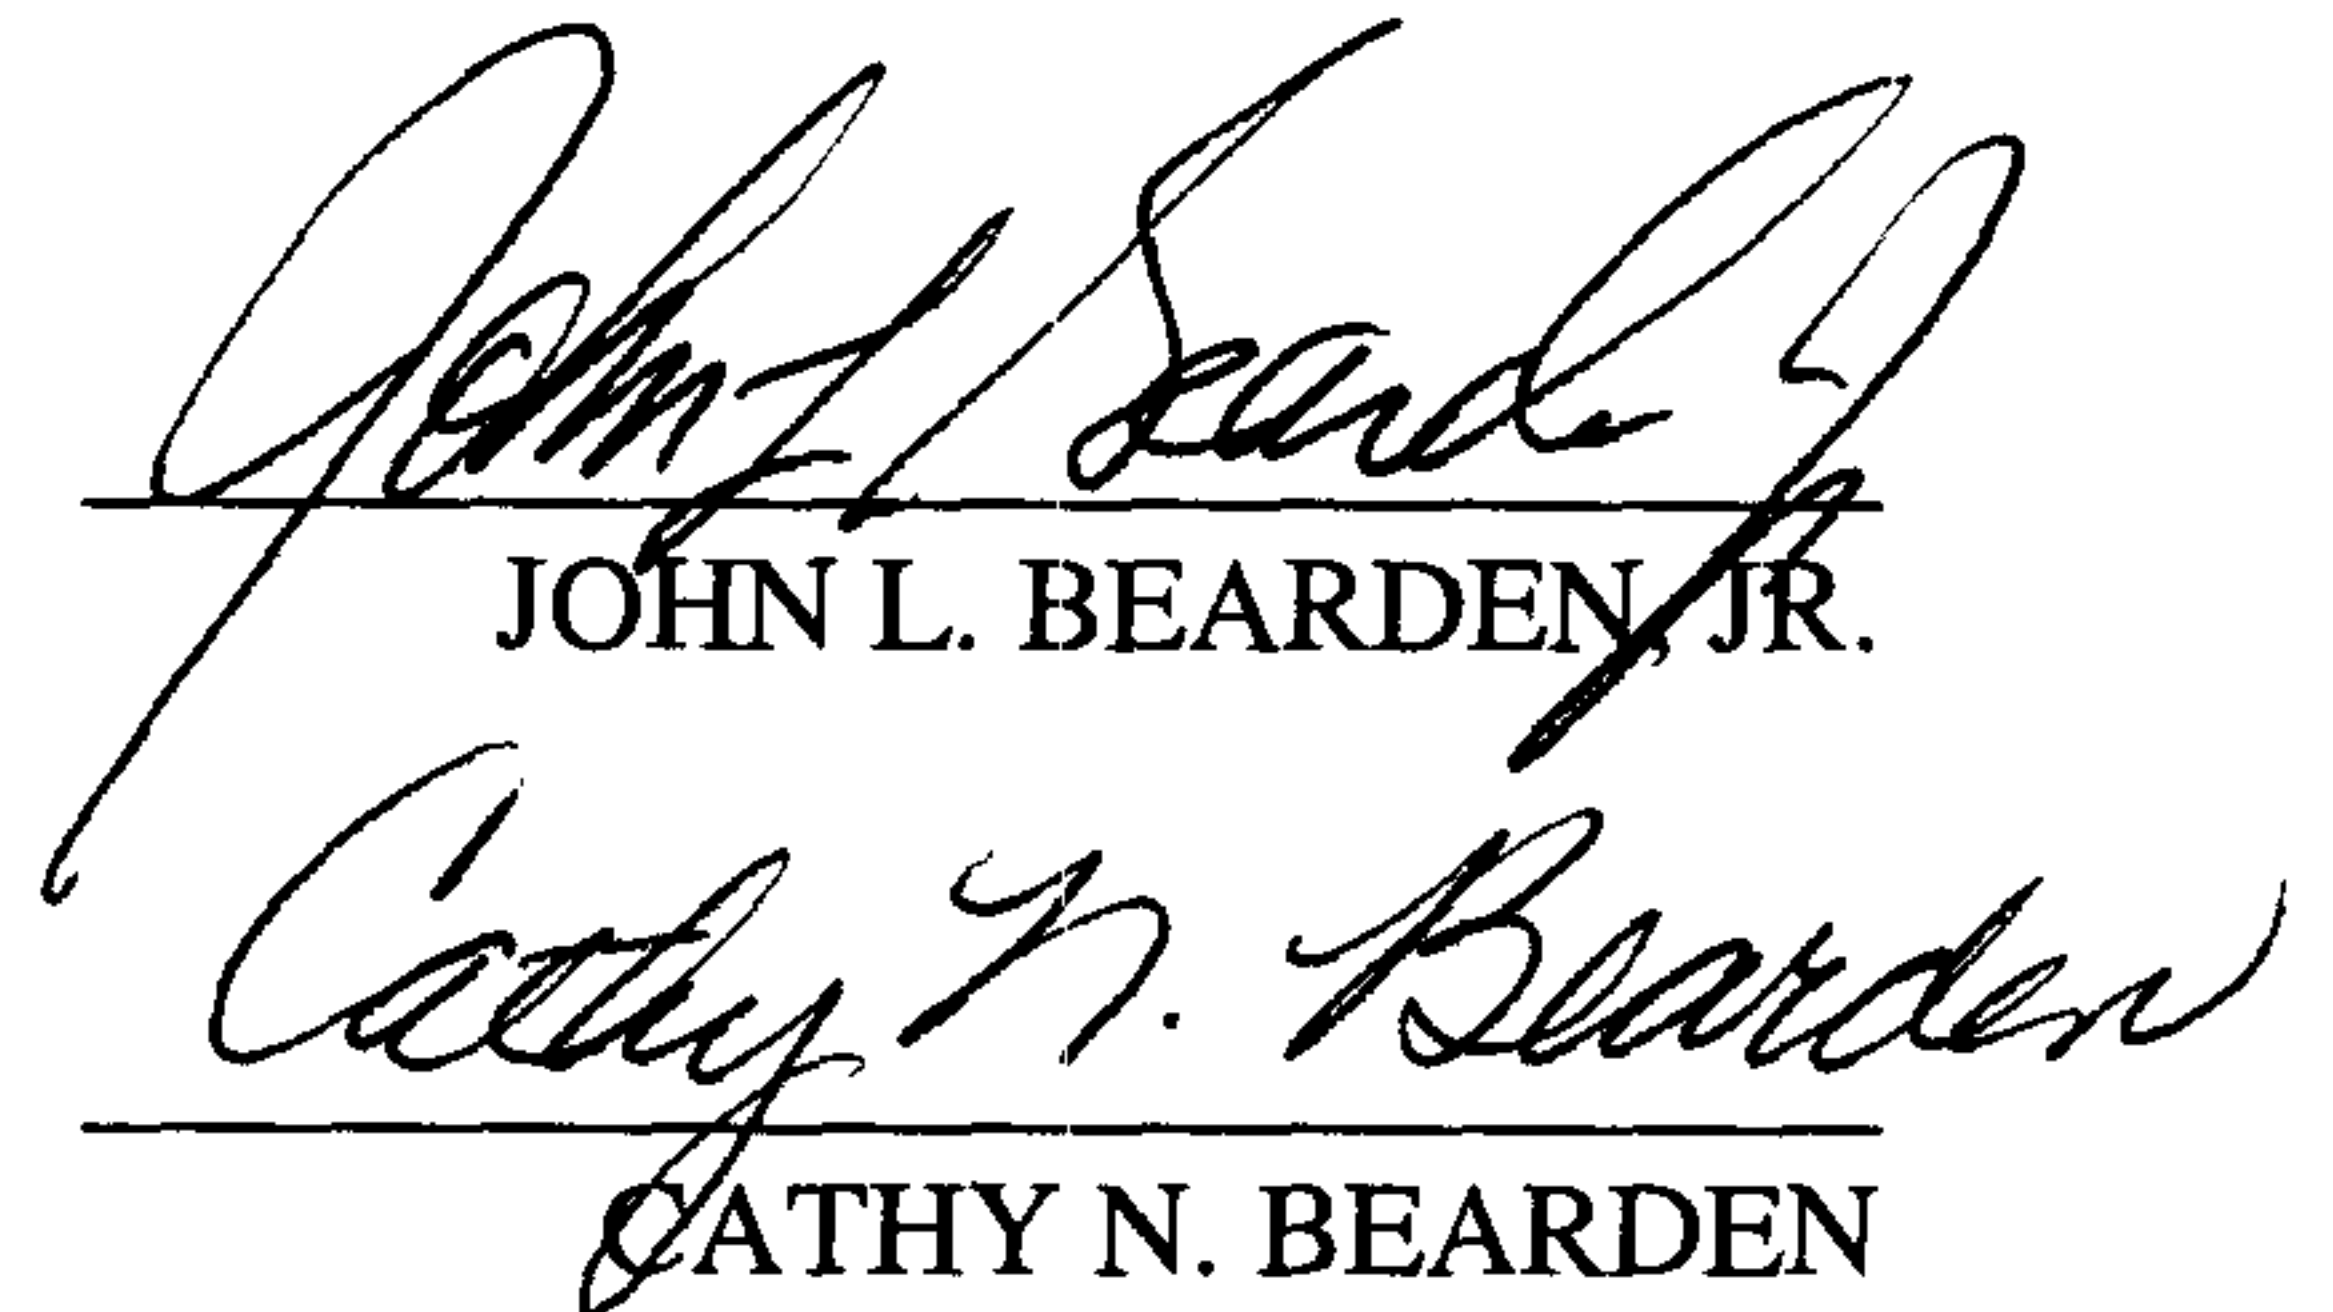 John L Bearden Jr
JOHN L. BEARDEN, JR.
Cathy N. Bearden
CATHY N. BEARDEN